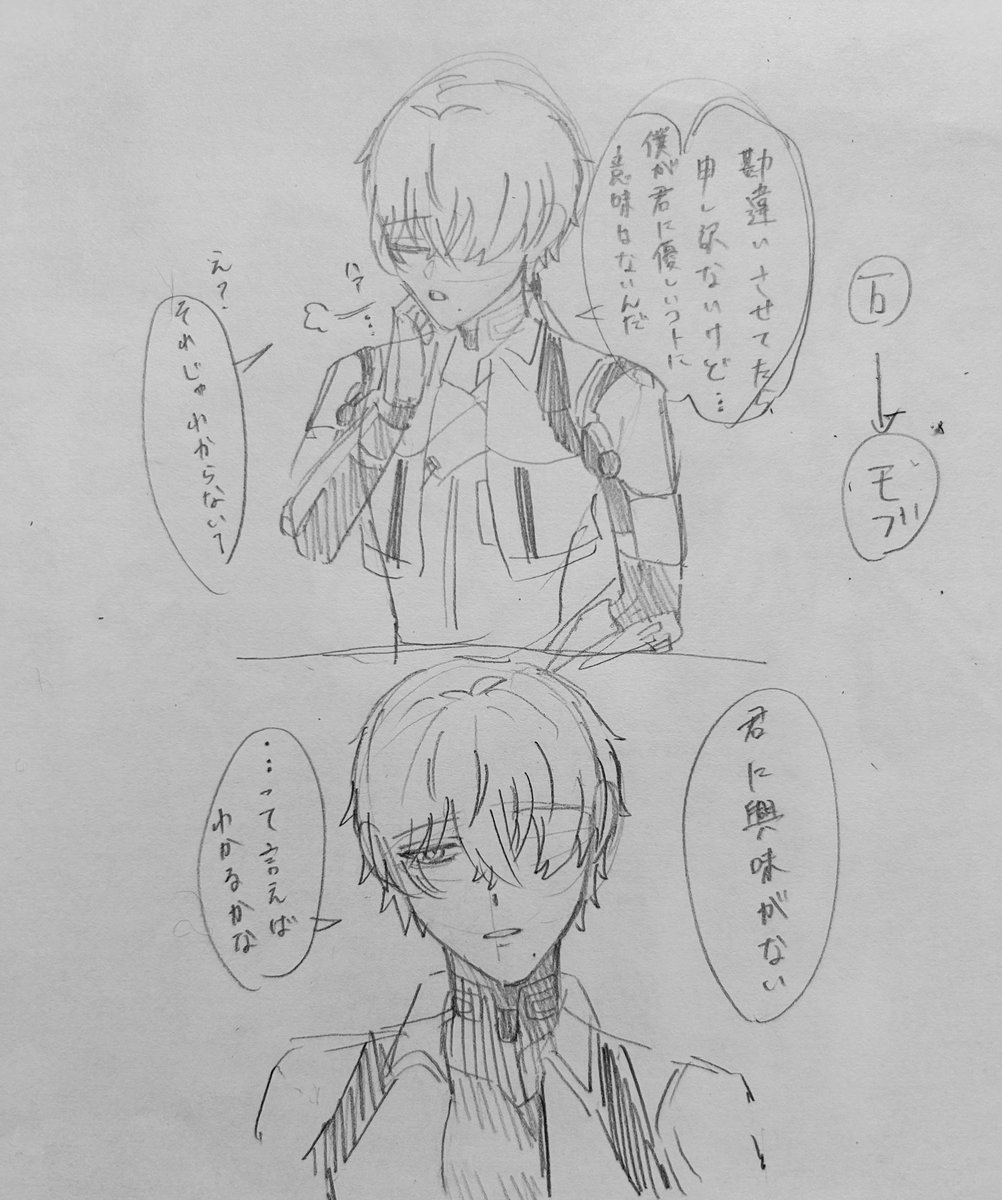 万
モブ
勘違いさせてたら
申し訳ないけど…
僕が君に優しいコトに
意味はないんだ
ハァ…
え?
それじゃわからない?
君に興味がない
…って言えば
わかるかな